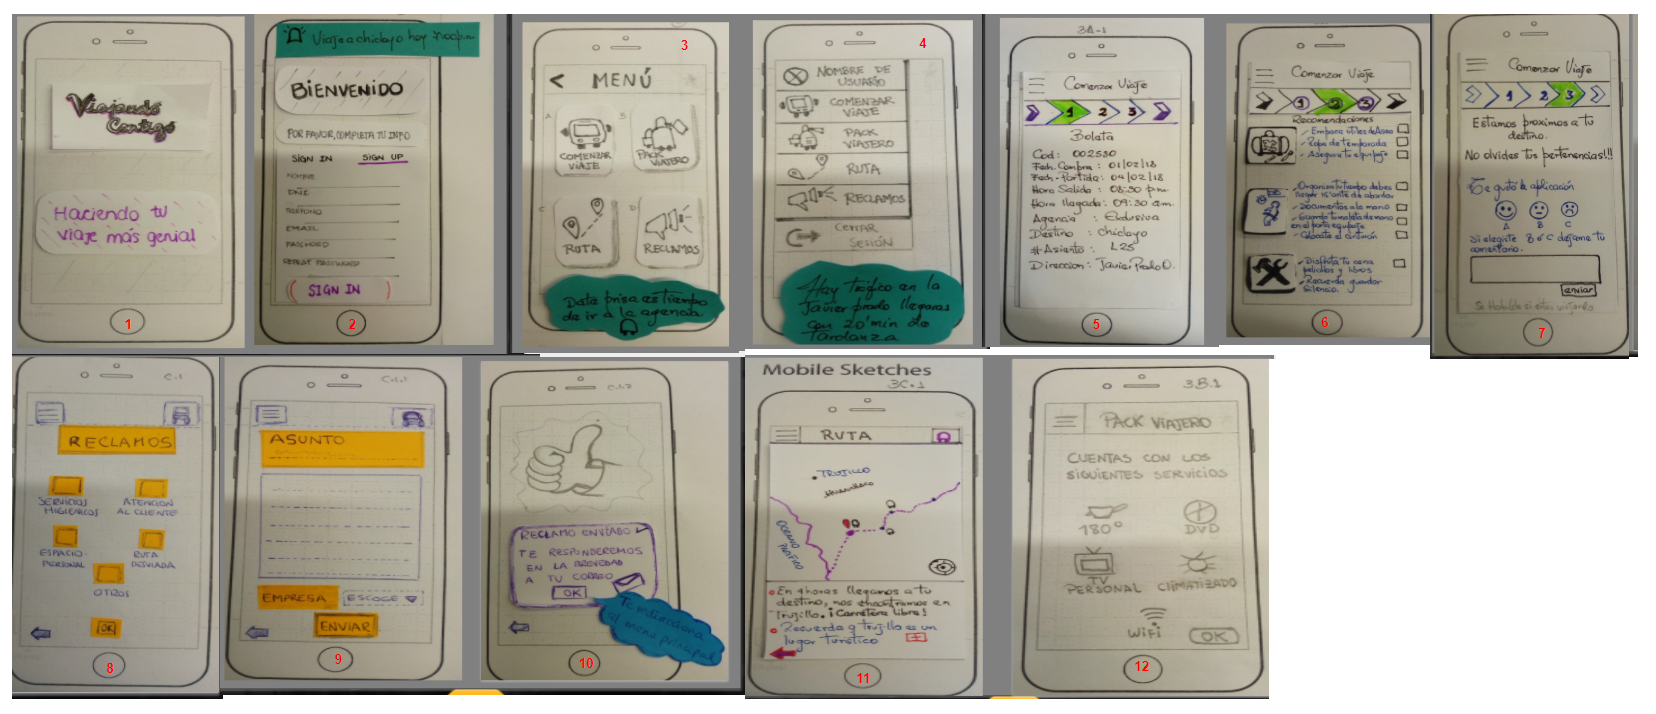 Viajando
Contigo
Haciendo tu
viaje más genial
1
Viaje a chiclayo hoy
BIENVENIDO
POR FAVOR, COMPLETA TU INFO
SIGN IN SIGN UP
NOMBRE
DNI:
TELEFONO
EMAIL
PASSWORD
REPEAT PASSWORD
SIGN IN
2
3
< MENÚ
A B
COMENZAR
VIAJE
PACK
VIAJERO
C D
RUTA
RECLAMOS
Date prisa es tiempo
de ir a la agencia
4
NOMBRE DE
USUARIO
COMENZAR
VIAJE
PACK
VIAJERO
RUTA
RECLAMOS
CERRAR
SESIÓN
Hay tráfico en la
Javier prado llegaras
con 20 min de
Tardanza
3A-1
Comenzar Viaje
1 2 3
Boleta
Cod: 002530
Fech. Compra: 01/02/18
Fech. Partida: 04/02/18
Hora Salida: 08:30 pm
Hora llegada: 09:30 am
Agencia: Exclusiva
Destino: chiclayo
# Asiento: L25
Direccion: Javier Prado O.
5
Comenzar Viaje
1 2 3
Recomendaciones
Empaca útiles de Aseo
Ropa de temporada
Asegura tu equipaje
Organiza tu tiempo debes
llegar antes de abordar
Documentos a la mano
Guarda tu maleta de mano
en el porta equipaje
Colocate el cinturón
Disfruta tu cena
películas y libros
Recuerda guardar
silencio.
6
Comenzar Viaje
1 2 3
Estamos proximos a tu
destino.
No olvides tus pertenencias!!!
Te gustó la aplicación
A B C
Si elegiste B o C dejame tu
comentario.
enviar
Se Habilita si estas viajando
7
C.1
RECLAMOS
SERVICIOS
HIGIENICOS
ATENCION
AL CLIENTE
ESPACIO
PERSONAL
RUTA
DESVIADA
OTROS
OK
8
C.1.1
ASUNTO
EMPRESA ESCOGE
ENVIAR
9
C.1.2
RECLAMO ENVIADO
TE RESPONDEREMOS
EN LA BREVEDAD
A TU CORREO
OK
Te direcciona
al menu principal
10
Mobile Sketches
3C.1
RUTA
TRUJILLO
OCEANO
PACIFICO
En 9 horas llegamos a tu
destino, nos encontramos en
trujillo. ¡Carretera libre!
Recuerda q trujillo es un
lugar turístico +
11
3.B.1
PACK VIAJERO
CUENTAS CON LOS
SIGUIENTES SERVICIOS
180°
DVD
TV
PERSONAL
CLIMATIZADO
WiFi
OK
12